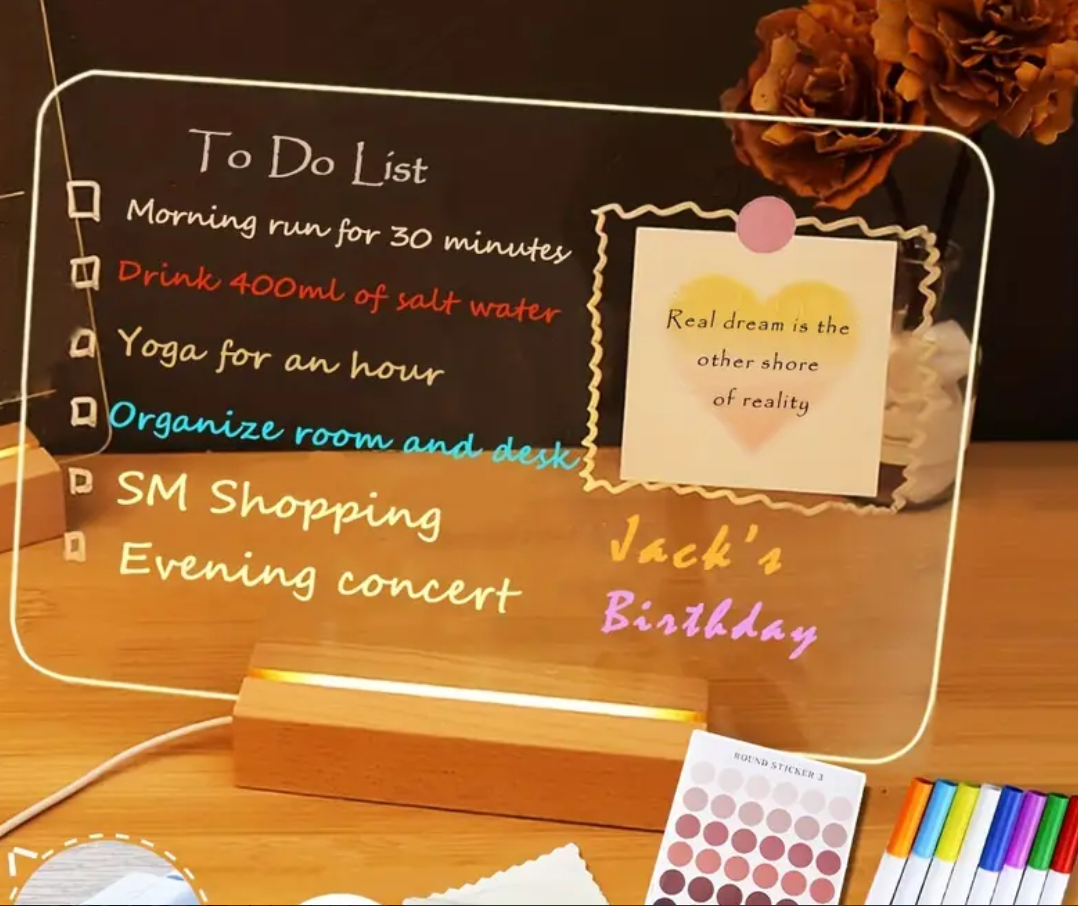 To Do List
Morning run for 30 minutes
Drink 400ml of salt water
Yoga for an hour
Organize room and desk
SM Shopping
Evening concert
Real dream is the
other shore
of reality
Jack's
Birthday
ROUND STICKER 3